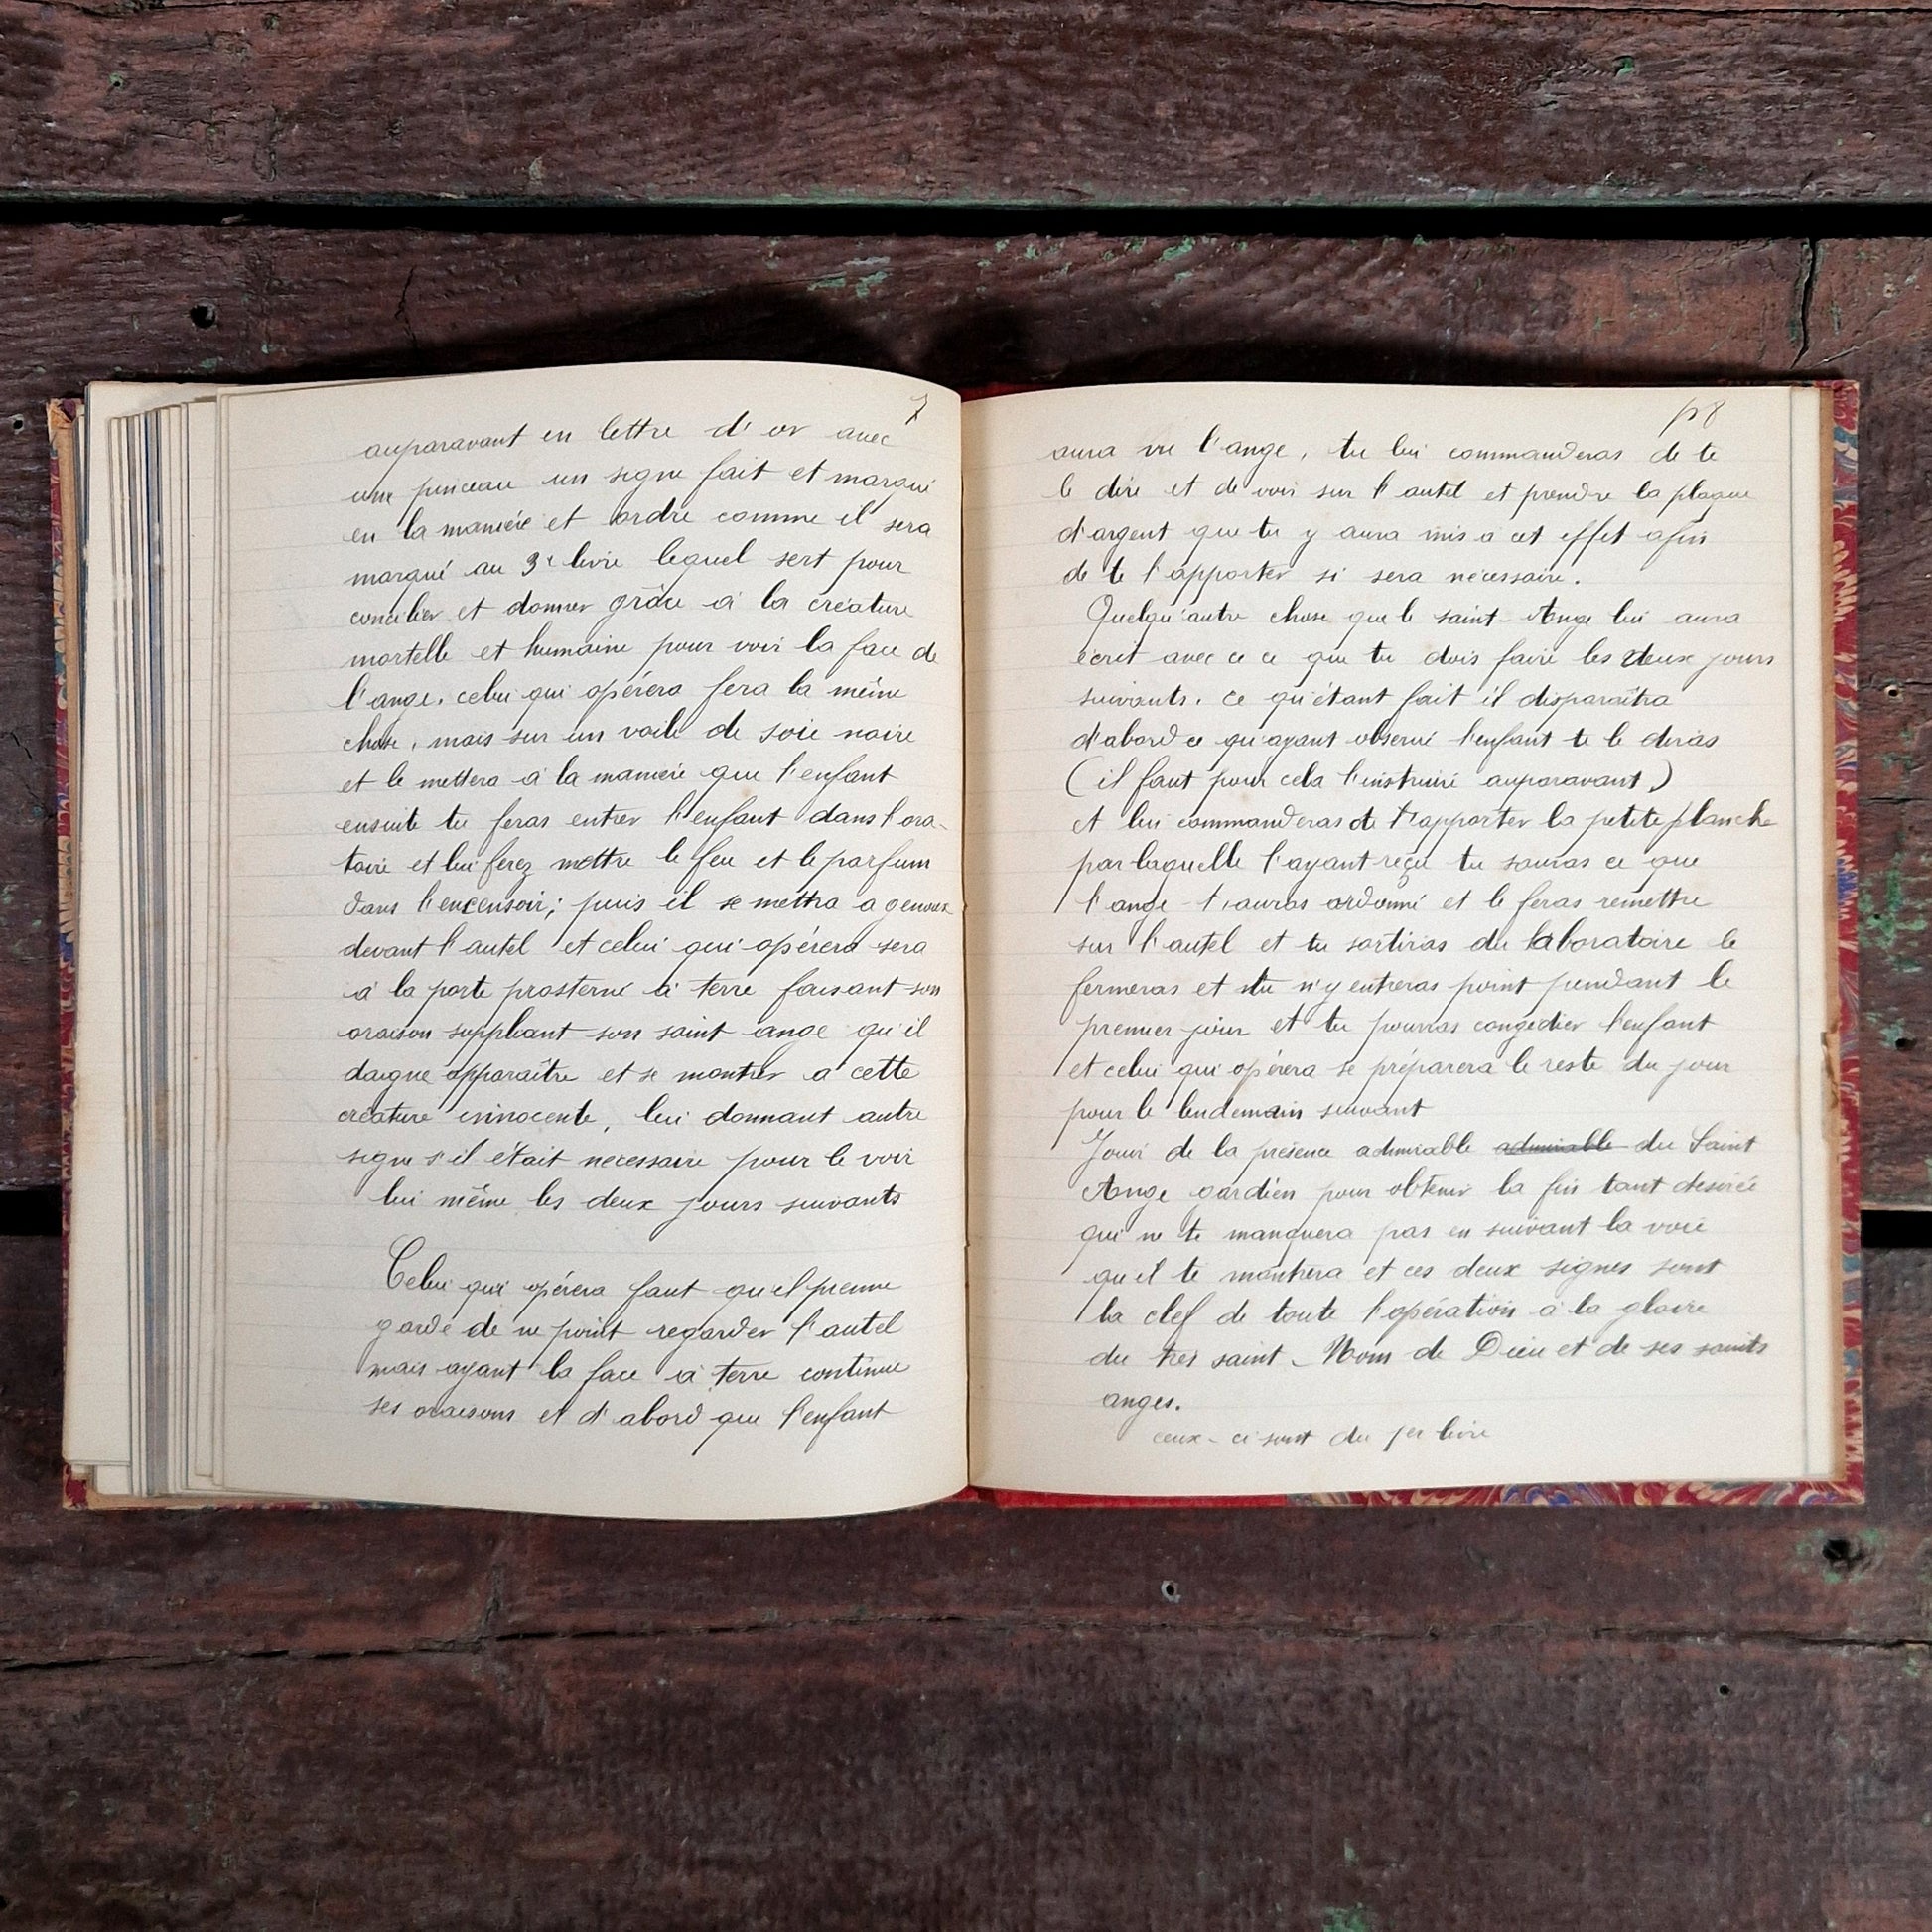 7
auparavant en lettre d'or avec
une pinceau un signe fait et marqué
en la manière et ordre comme il sera
marqué au 3e livre lequel sert pour
concilier et donner grâce à la créature
mortelle et humaine pour voir la face de
l'ange. celui qui opérera fera la même
chose, mais sur un voile de soie noire
et le mettera à la manière que l'enfant
ensuite tu feras entrer l'enfant dans l'ora-
toire et lui ferez mettre le feu et le parfum
dans l'encensoir; puis il se mettra a genoux
devant l'autel et celui qui opérera sera
à la porte prosterné à terre faisant son
oraison suppliant son saint ange qu'il
daigne apparaître et se montrer a cette
créature innocente, lui donnant autre
signe s'il était necessaire pour le voir
lui même les deux jours suivants
Celui qui opérera faut qu'il prenne
garde de ne point regarder l'autel
mais ayant la face à terre continue
ses oraisons et d'abord que l'enfant
p8
aura vu l'ange, tu lui commanderas de te
le dire et de voir sur l'autel et prendre la plaque
d'argent que tu y aura mis a cet effet afin
de te l'apporter si sera nécessaire.
Quelqu'autre chose que le saint-Ange lui aura
écrit avec ce ce que tu dois faire les deux jours
suivants. ce qu'étant fait il disparaîtra
d'abord ce qu'ayant observé l'enfant te le diras
(il faut pour cela l'instruire auparavant)
et lui commanderas de t'apporter la petite planche
par laquelle l'ayant reçu tu sauras ce que
l'ange t'auras ordonné et le feras remettre
sur l'autel et tu sortiras du laboratoire le
fermeras et tu n'y entreras point pendant le
premier jour et tu pourras congedier l'enfant
et celui qui opérera se préparera le reste du jour
pour le lendemain suivant
Jouir de la présence admirable admirable du Saint
Ange gardien pour obtenir la fin tant desirée
qui ne te manquera pas en suivant la voie
qu'il te montrera et ces deux signes sont
la clef de toute l'opération à la gloire
du très saint-Nom de Dieu et de ses saints
anges.
ceux-ci sont du 1er livre